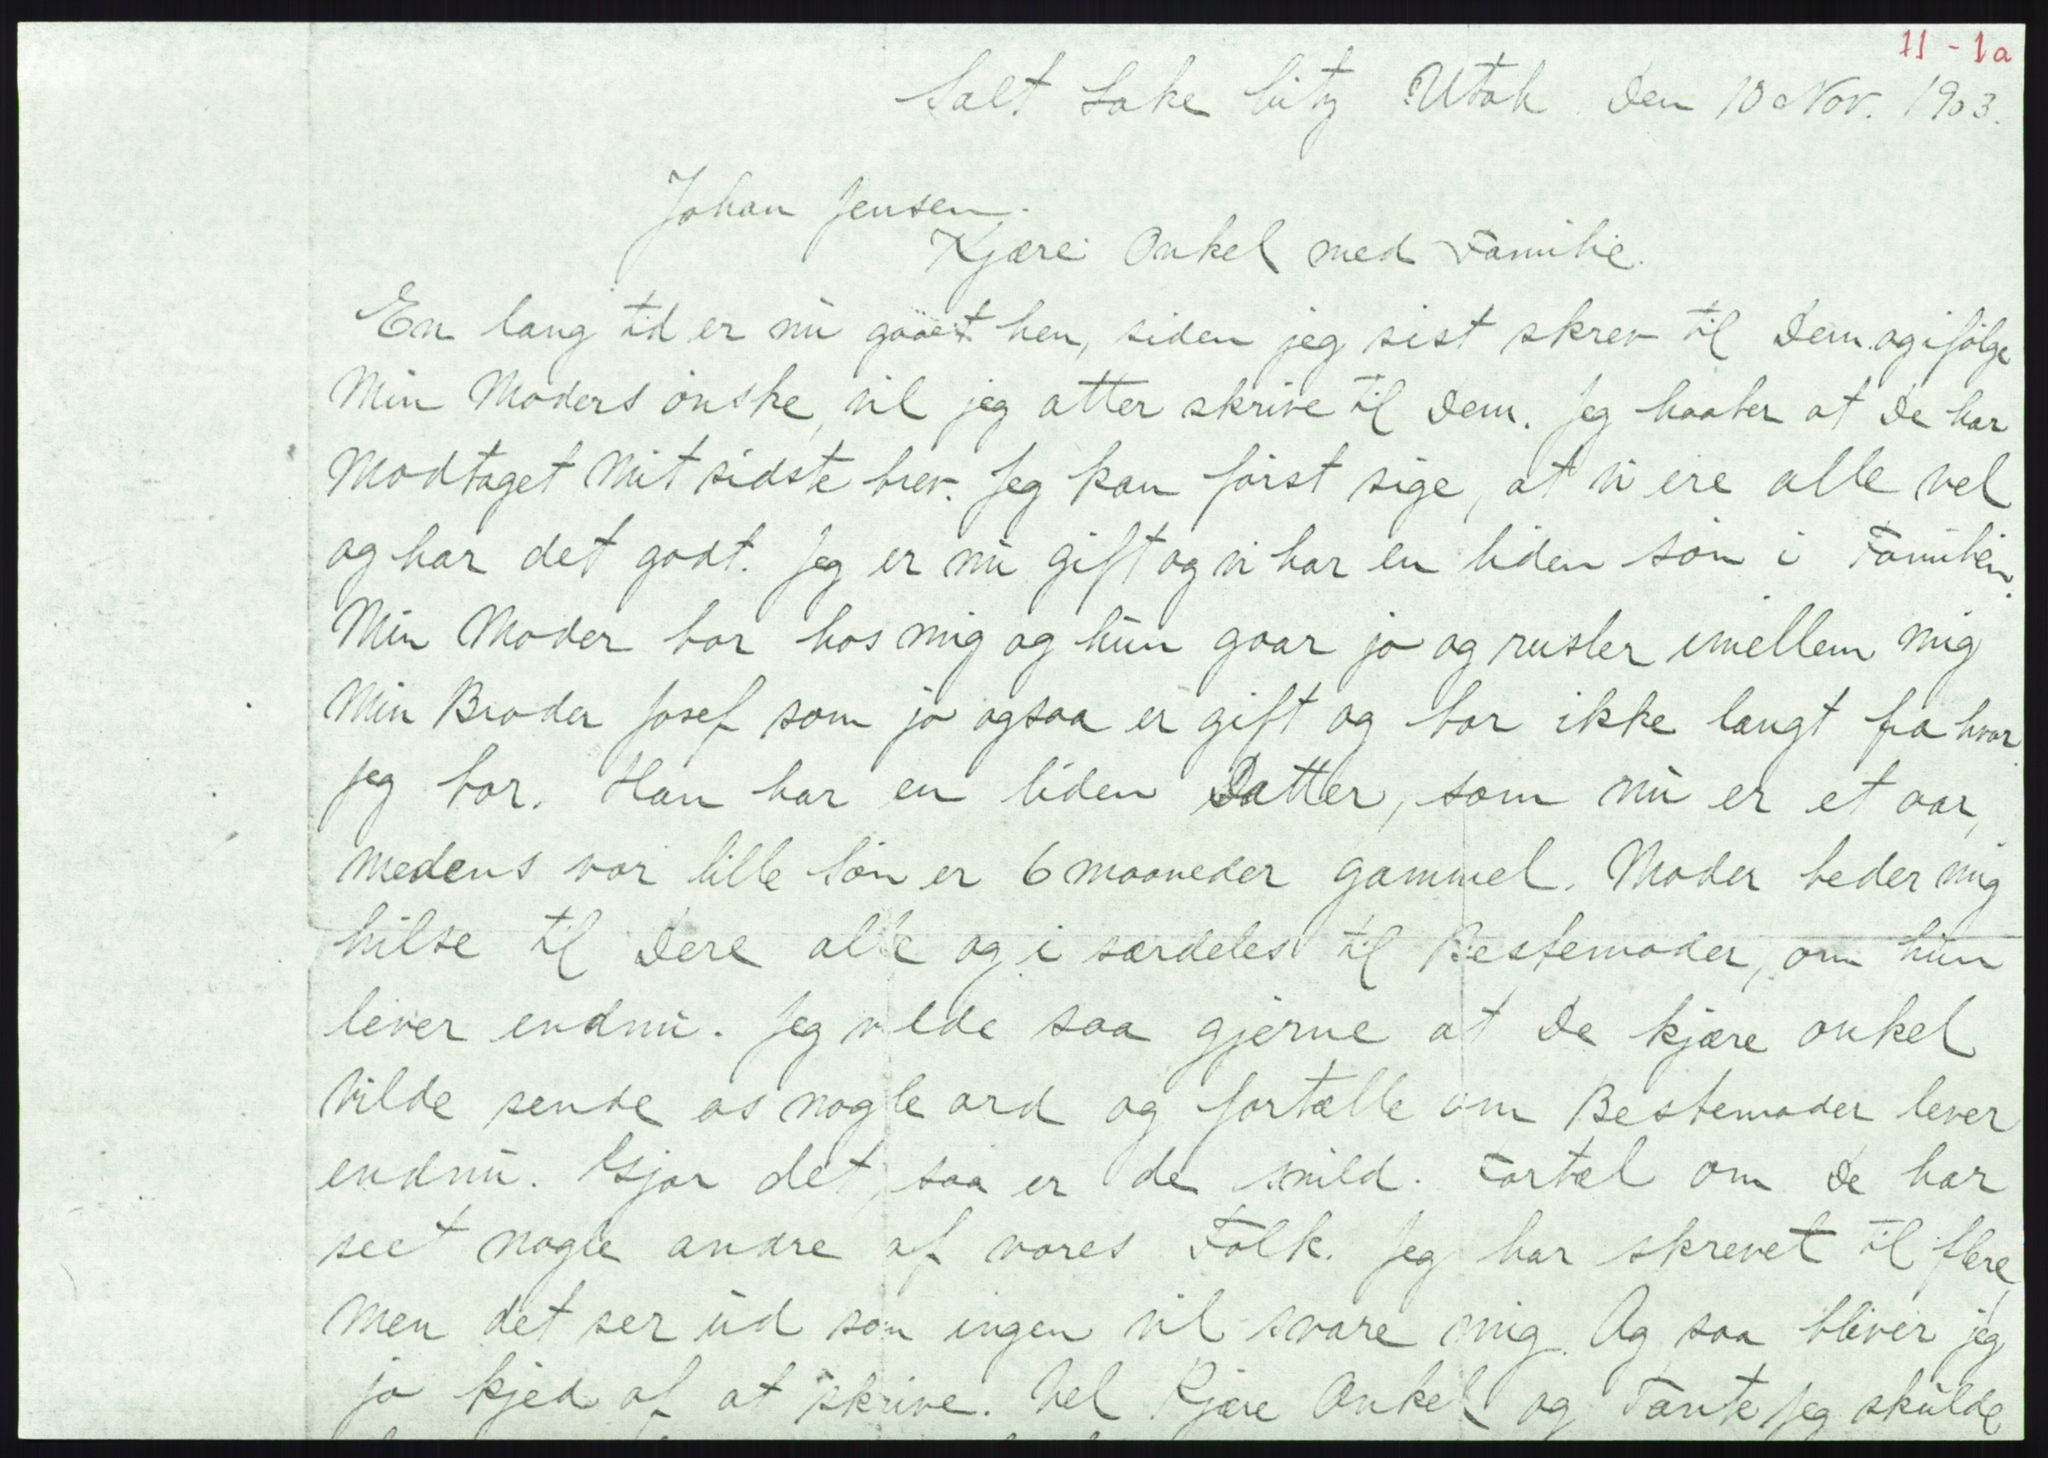 11-1a
Salt Lake City Utah Den 10 Nov. 1903.
Johan Jensen.
Kjære Onkel med Familie.
En lang tid er nu gaaet hen, siden jeg sist skrev til Dem. og ifølge
Min Moders ønske, vil jeg atter skrive til Dem. Jeg haaber at De har
Modtaget Mit sidste brev. Jeg kan først sige, at vi ere alle vel
og har det godt. Jeg er nu gift og vi har en liden søn i Familien.
Min Moder bor hos mig og hun gaar jo og rusler imellem mig
Min Broder Josef som jo ogsaa er gift og bor ikke langt fra hvor
jeg bor. Han har en liden Datter, som nu er et aar,
medens vor lille Søn er 6 maaneder gammel. Moder beder mig
hilse til Dere alle og i særdeles til Bestemoder, om hun
lever endnu. Jeg vilde saa gjerne at De kjære onkel
Vilde sende os nogle ord og fortælle om Bestemoder lever
endnu. Gjør det, saa er de snild. Fortæl om De har
seet nogle andre af vores Folk. Jeg har skrevet til flere,
Men det ser ud som ingen vil svare mig. Og saa bliver jeg
jo kjed af at skrive. Vel Kjære Onkel og Tante jeg skulde